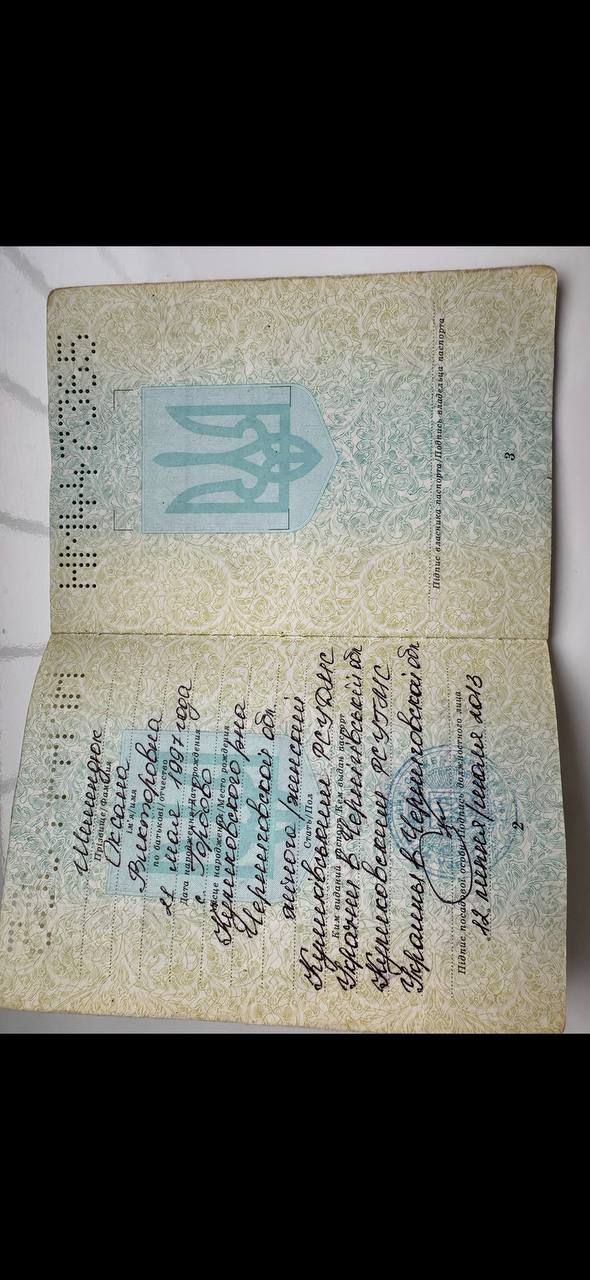 Прізвище/Фамилия
Оксана
Ім'я/Имя
Викторовна
по батькові/отчество
21 мая 1997 года
Дата народження/Дата рождения
с. Горбово
Місце народження/Место рождения
Куликовского р-на
Черниговской обл.
жіноча/женский
Стать/Пол
Куликовським РСУДМС
Ким виданий паспорт/Кем выдан паспорт
України в Чернігівській обл
Куликовским РСУГМС
Украины в Черниговской обл
Підпис посадової особи/Подпись должностного лица
12 липня/июля 2013
2
НМ
Підпис власника паспорта/Подпись владельца паспорта
3